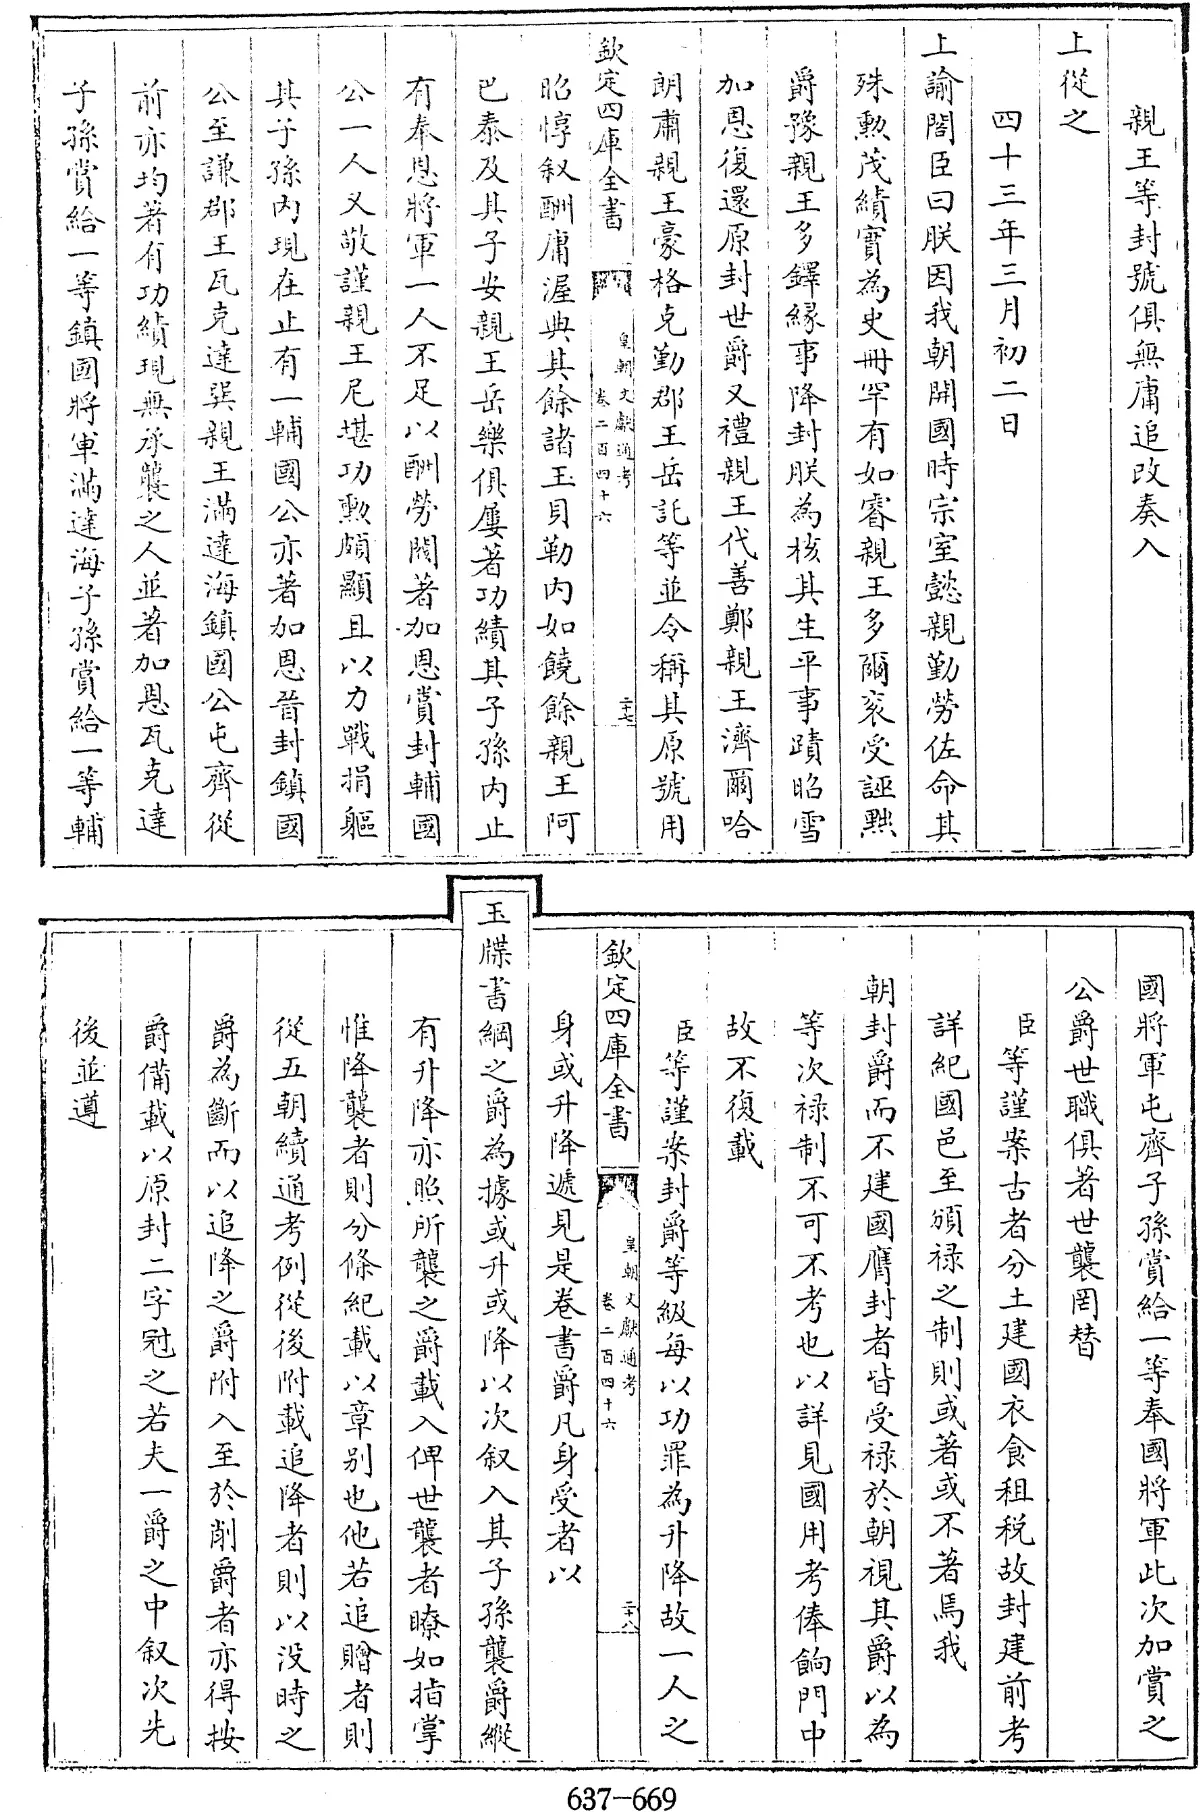 親王等封號俱無庸追改奏入
上從之
四十三年三月初二日
上諭閣臣曰朕因我朝開國時宗室懿親勤勞佐命其
殊勲茂績實為史冊罕有如睿親王多爾衮受誣黜
爵豫親王多鐸緣事降封朕為核其生平事蹟昭雪
加恩復還原封世爵又禮親王代善鄭親王濟爾哈
朗肅親王豪格克勤郡王岳託等並令稱其原號用
欽定四庫全書
皇朝文獻通考
卷二百四十六
二十七
昭惇叙酬庸渥典其餘諸王貝勒内如饒餘親王阿
巴泰及其子安親王岳樂俱屢著功績其子孫内止
有奉恩將軍一人不足以酬勞閥著加恩賞封輔國
公一人又敬謹親王尼堪功勲頗顯且以力戰捐軀
其子孫内現在止有一輔國公亦著加恩晉封鎮國
公至謙郡王瓦克達巽親王滿達海鎮國公屯齊從
前亦均著有功績現無承襲之人並著加恩瓦克達
子孫賞給一等鎮國將軍滿達海子孫賞給一等輔
國將軍屯齊子孫賞給一等奉國將軍此次加賞之
公爵世職俱著世襲罔替
臣等謹案古者分土建國衣食租稅故封建前考
詳紀國邑至頒禄之制則或著或不著焉我
朝封爵而不建國膺封者皆受禄於朝視其爵以為
等次禄制不可不考也以詳見國用考俸餉門中
故不復載
臣等謹案封爵等級每以功罪為升降故一人之
欽定四庫全書
皇朝文獻通考
卷二百四十六
二十八
身或升降遞見是卷書爵凡身受者以
玉牒書綱之爵為據或升或降以次叙入其子孫襲爵縱
有升降亦照所襲之爵載入俾世襲者瞭如指掌
惟降襲者則分條紀載以章别也他若追贈者則
從五朝續通考例從後附載追降者則以没時之
爵為斷而以追降之爵附入至於削爵者亦得按
爵備載以原封二字冠之若夫一爵之中叙次先
後並遵
637-669